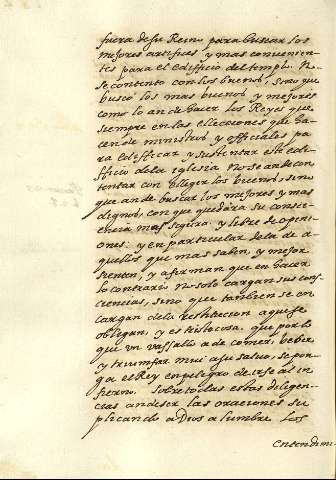 fuera de su Reino para buscar los
mejores artifices y mas convenien-
tes para el edifficio del templo. No
se contento con los buenos, sino que
busco los mas buenos y mejores
como lo an de hacer los Reyes que
siempre en las elecciones que ha-
cen de ministros y officiales pa
ra edifficar y sustentar este edi-
fficio de la iglesia no se an de con-
tentar con ellegir los buenos, sino
que an de buscar los mejores y mas
dignos, con que quedara su conscie-
encia mas segura y libre de openi-
ones. y en particular de la de a-
quellos que mas saben, y mejor
sienten, y afirman que en hacer
lo contrario no solo cargan sus cons
ciencias, sino que tambien se en
cargan de la restitucion a que se
obligan, y es triste cosa que por lo
que un vassallo a de comer, beber
y triumfar mui a su salvo, se pon-
ga el Rey en peligro de irse al in
fierno. Sobre todas estas diligen-
cias an de ser las oraciones su
plicando a Dios alumbre los
entendimi-